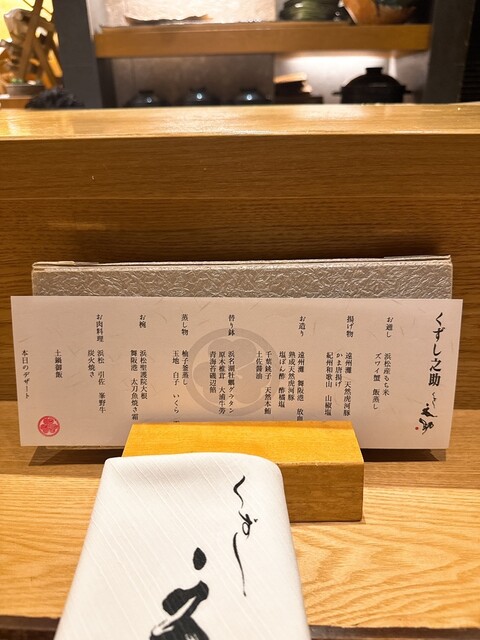 くずし之助
くずし
之助
お通し
浜松産もち米
ズワイ蟹 飯蒸し
揚げ物
遠州灘 天然虎河豚
かま唐揚げ
紀州和歌山 山椒塩
お造り
遠州灘 舞阪港
熟成天然虎河豚
塩ぽん酢 酢橘塩
千葉銚子 天然本鮪
土佐醤油
替り鉢
浜名湖牡蠣グラタン
原木椎茸 大浦牛蒡
青海苔磯辺餡
蒸し物
柚子釜蒸し
玉地 白子 いくら
お椀
浜松聖護院大根
舞阪港 太刀魚焼き霜
お肉料理
浜松 引佐 峯野牛
炭火焼き
土鍋御飯
本日のデザート
くずし